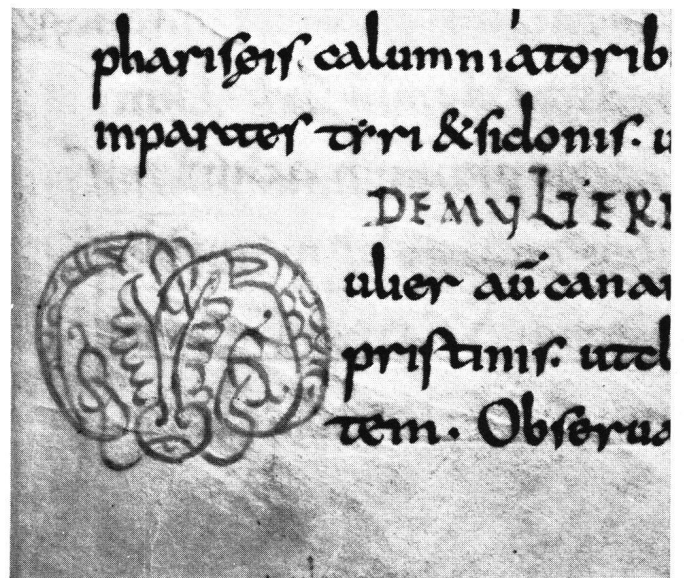 phariseis calumniatorib
inpartes tyri & sidonis. u
DE MULIERI
Mulier aū canan
pristinis. utcl
tem. Obserua